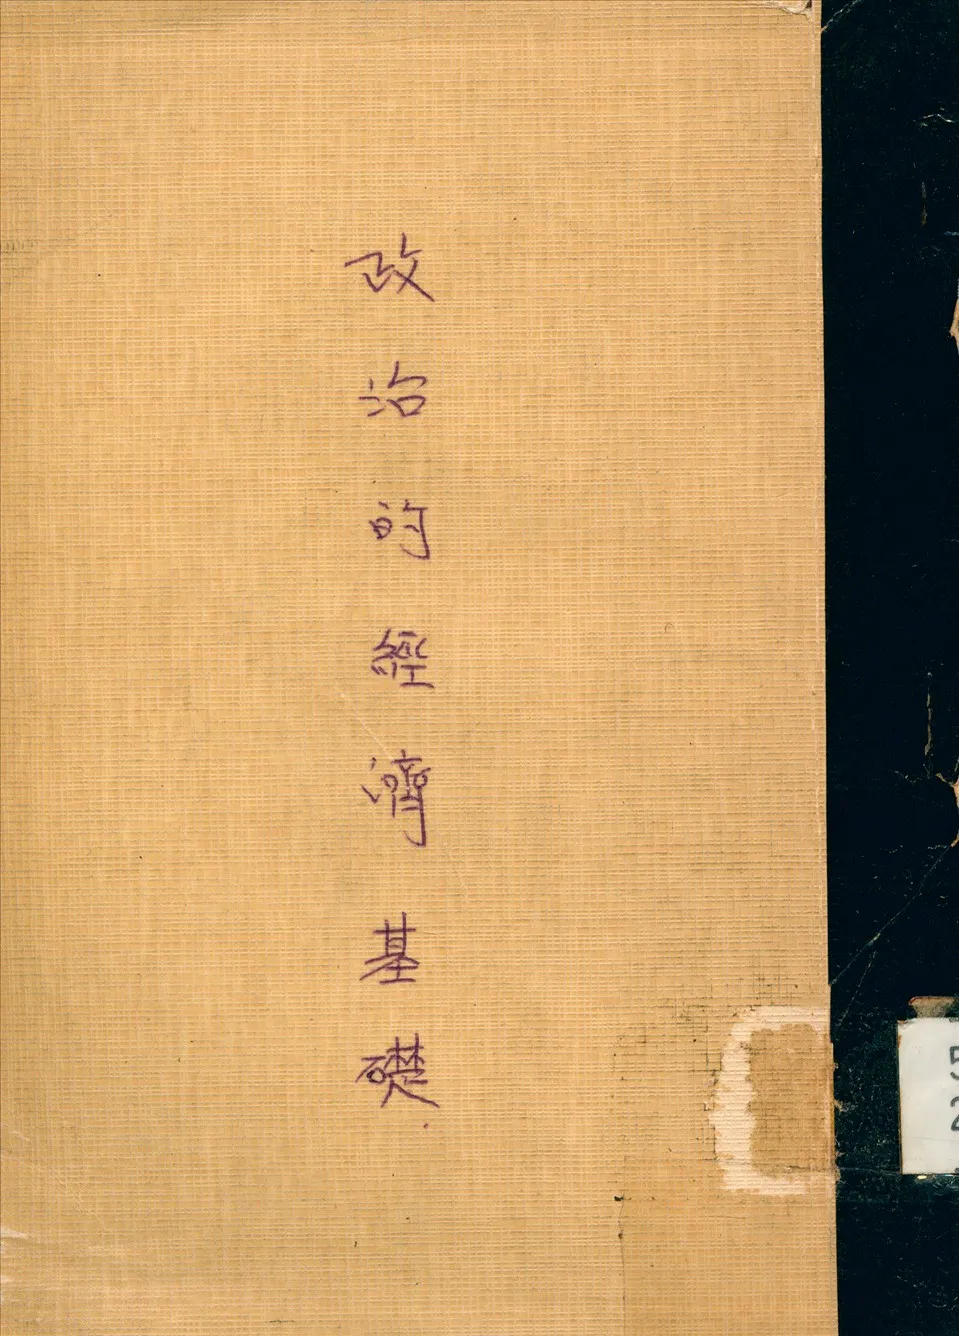 政治的經濟基礎
5
2